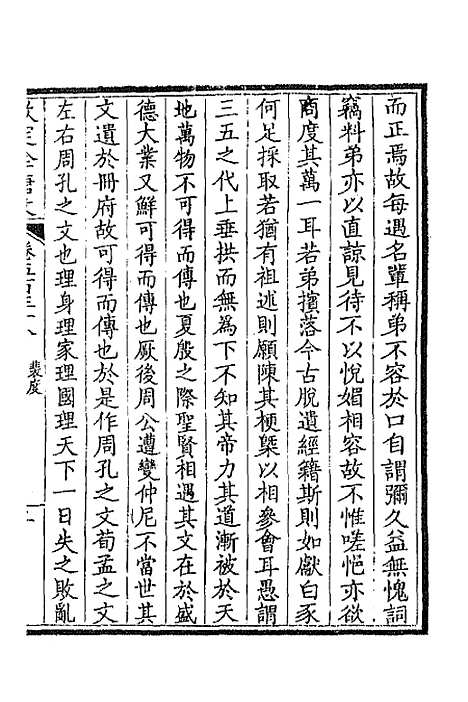 而正焉故每遇名輩稱弟不容於口自謂彌久益無愧詞
竊料弟亦以直諒見待不以悅媚相容故不惟嗟悒亦欲
商度其萬一耳若弟擯落今古脫遺經籍斯則如獻白豕
何足採取若猶有祖述則願陳其梗槩以相參會耳愚謂
三五之代上垂拱而無為下不知其帝力其道漸被於天
地萬物不可得而傳也夏殷之際聖賢相遇其文在於盛
德大業又鮮可得而傳也厥後周公遭變仲尼不當世其
文遺於冊府故可得而傳也於是作周孔之文荀孟之文
左右周孔之文也理身理家理國理天下一日失之敗亂
欽定全唐文
卷五百三十八
裴度